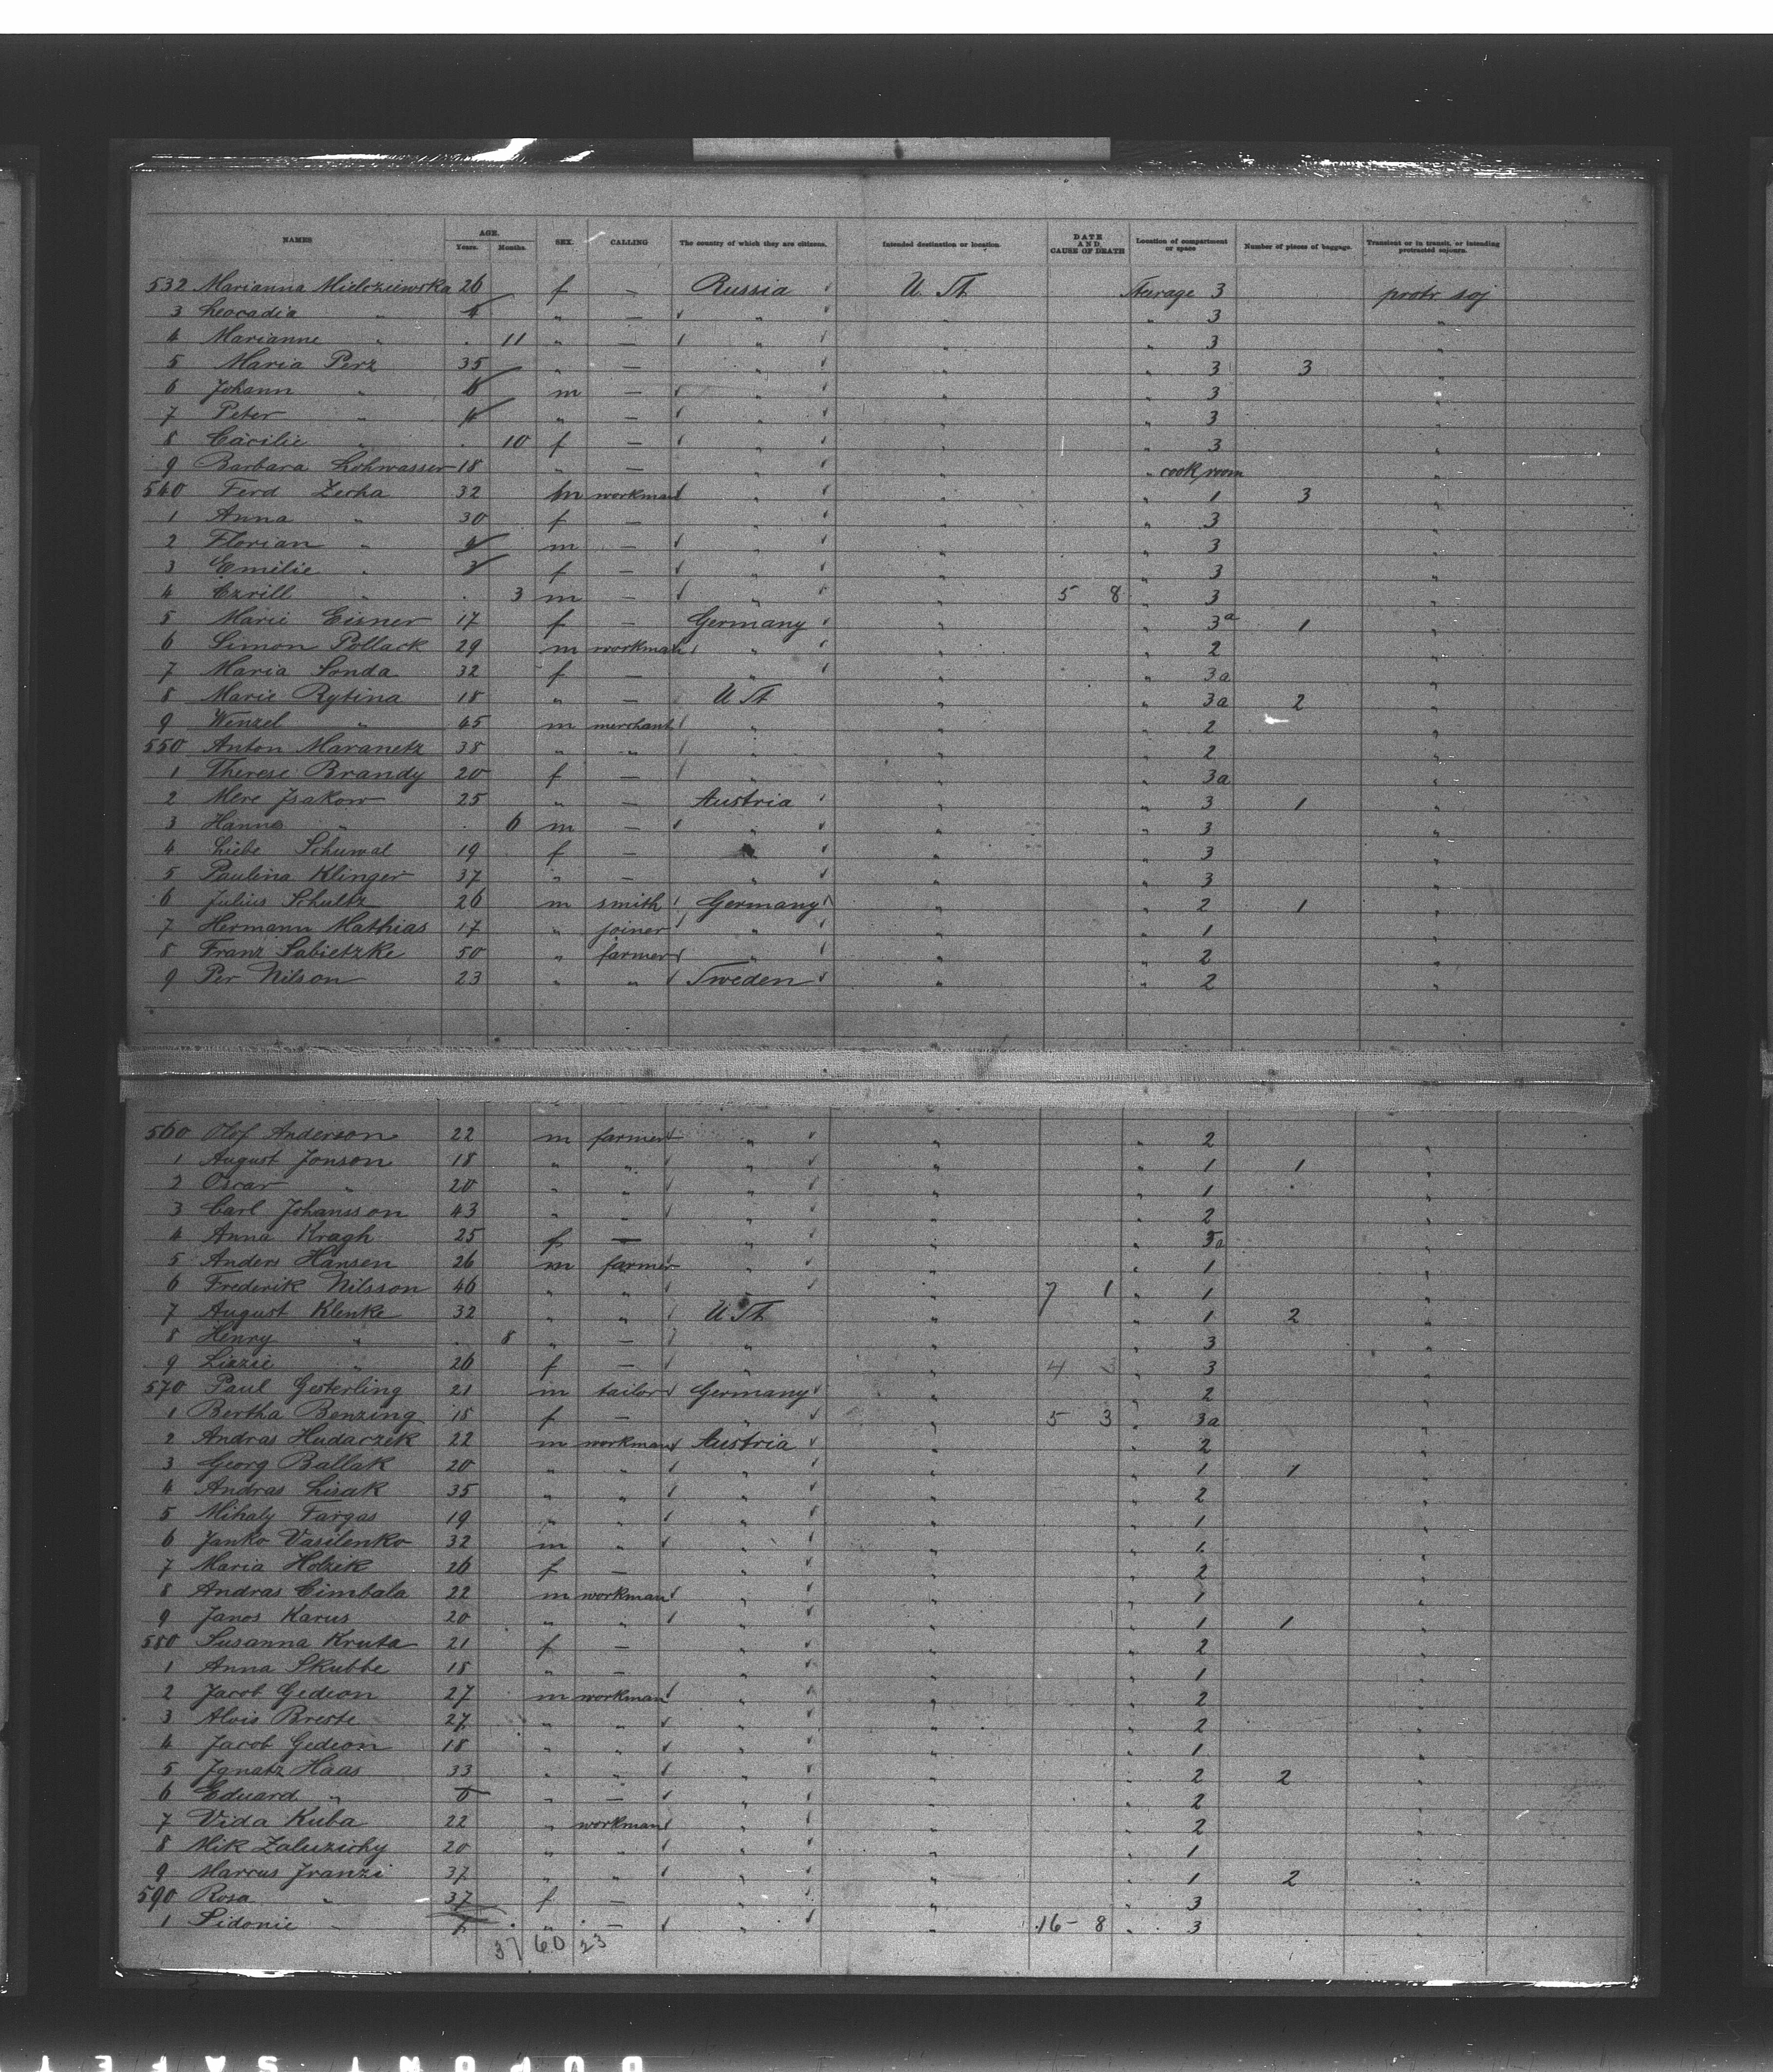 NAMES AGE. Years. Months. SEX. CALLING The country of which they are citizens. Intended destination or location. DATE AND CAUSE OF DEATH Location of compartment or space Number of pieces of baggage. Transient or in transit, or intending protracted sojourn.
532 Marianna Mielcziewska 26 f — Russia U. St. Steerage 3 protr soj
3 Leocadia " 4 " — " " " 3 "
4 Marianne " . 11 " — " " " 3 "
5 Maria Perz 35 " — " " " 3 3 "
6 Johann " m — " " " 3 "
7 Peter " 4 " — " " " 3 "
8 Cäcilie " . 10 f — " " " 3 "
9 Barbara Lohwasser 18 " — " " " cook room "
540 Ferd Zecha 32 m workman " " " 1 3 "
1 Anna " 30 f — " " " 3 "
2 Florian " m — " " " 3 "
3 Emilie " f — " " " 3 "
4 Czrill " . 3 m — " " 5 8 " 3 "
5 Marie Eisner 17 f — Germany " " 3a 1 "
6 Simon Pollack 29 m workman " " " 2 "
7 Maria Sonda 32 f — " " " 3a "
8 Marie Rytina 18 " — U St " " 3a 2 "
9 Wenzel " 45 m merchant " " " 2 "
550 Anton Maranetz 38 " " " " " 2 "
1 Therese Brandy 20 f — " " " 3a "
2 Mere Isakow 25 " — Austria " " 3 1 "
3 Hanne " . 6 m — " " " 3 "
4 Liebe Schuwal 19 f — " " " 3 "
5 Paulina Klinger 37 " — " " " 3 "
6 Julius Schultz 26 m smith Germany " " 2 1 "
7 Hermann Mathias 17 " joiner " " " 1 "
8 Franz Sabietzke 50 " farmer " " " 2 "
9 Per Nilson 23 " " Sweden " " 2 "
560 Olof Anderson 22 m farmer " " " 2 "
1 August Jonson 18 " " " " " 1 1 "
2 Oscar " 20 " " " " " 1 "
3 Carl Johansson 43 " " " " " 2 "
4 Anna Kragh 25 f — " " " 3a "
5 Anders Hansen 26 m farmer " " " 1 "
6 Frederik Nilsson 46 " " " " 7 1 " 1 "
7 August Klenke 32 " " U St " " 1 2 "
8 Henry " . 8 " — " " " 3 "
9 Lizzie " 26 f — " " 4 3 " 3 "
570 Paul Gesterling 21 m tailor Germany " " 2 "
1 Bertha Benzing 15 f — " " 5 3 " 3a "
2 Andras Hudarzik 22 m workman Austria " " 2 "
3 Georg Ballak 20 " " " " " 1 1 "
4 Andras Lisak 35 " " " " " 2 "
5 Mihaly Fargas 19 " " " " " 1 "
6 Janko Vasilenko 32 m " " " " 1 "
7 Maria Holzik 26 f — " " " 2 "
8 Andras Cimbala 22 m workman " " " 1 "
9 Janos Karus 20 " " " " " 1 1 "
580 Susanna Kruta 21 f — " " " 2 "
1 Anna Skubbe 18 " — " " " 1 "
2 Jacob Gedeon 27 m workman " " " 2 "
3 Alois Breste 27 " " " " " 2 "
4 Jacob Gedeon 18 " " " " " 1 "
5 Ignatz Haas 33 " " " " " 2 2 "
6 Eduard " " — " " " 2 "
7 Vida Kuba 22 " workman " " " 2 "
8 Mik Zaluzichy 20 " " " " " 1 "
9 Marcus Franzi 37 " " " " " 1 2 "
590 Rosa " 37 f — " " " 3 "
1 Sidonie " " — " " 16 - 8 " 3
37 60 23